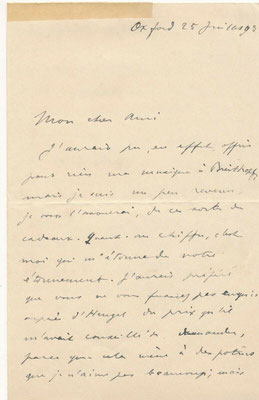 Oxford 25 Juillet 93
Mon cher Ami
J'aurais pu, en effet, offrir
pour rien ma musique à Breitkopf,
mais je suis un peu revenu,
je vous l'avouerai, de ces sortes de
cadeaux. Quant au chiffre, c'est
moi qui m'étonne de votre
étonnement. J'aurais préféré
que vous ne vous fussiez pas enquis
auprès d'Heugel du prix qu'il
m'avait conseillé de demander,
parce que cela mène à des potins
que je n'aime pas beaucoup; mais